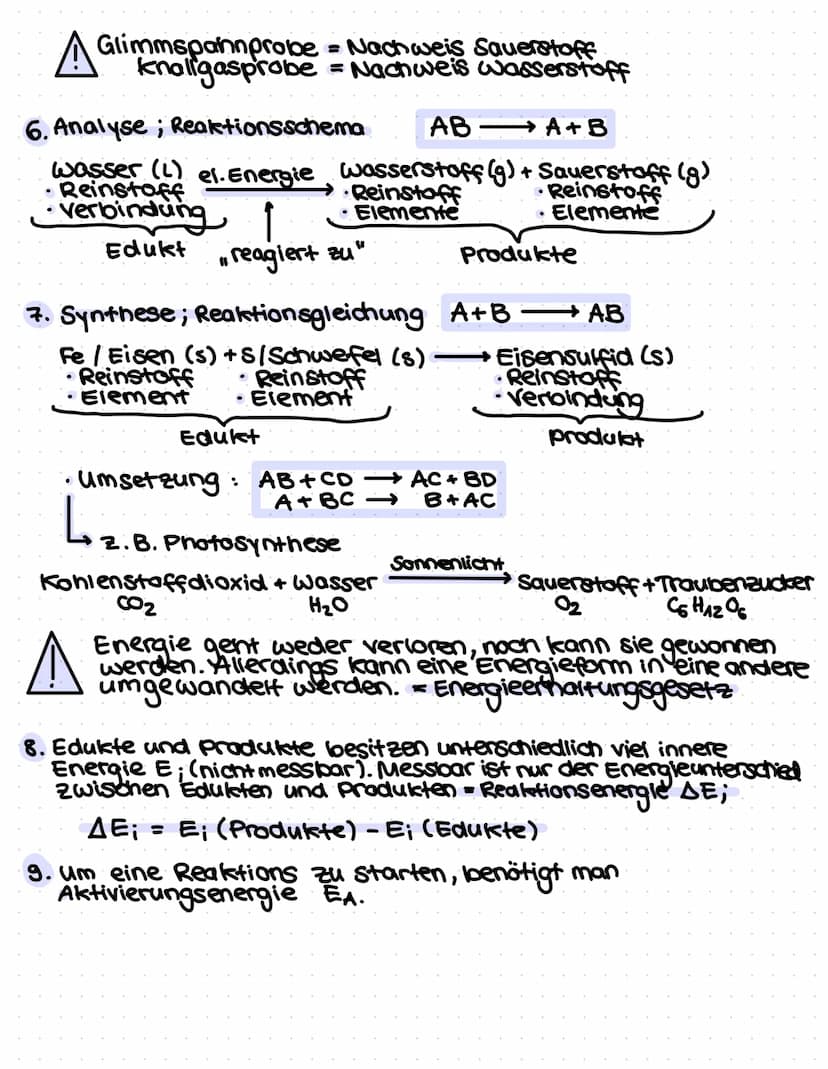 Glimmspanprobe = Nachweis Sauerstoff
Knallgasprobe = Nachweis Wasserstoff
6. Analyse ; Reaktionsschema AB → A + B
Wasser (L) el. Energie Wasserstoff (g) + Sauerstoff (g)
· Reinstoff → · Reinstoff · Reinstoff
· Verbindung · Elemente · Elemente
Edukt „reagiert zu" Produkte
7. Synthese ; Reaktionsgleichung A + B → AB
Fe / Eisen (s) + S / Schwefel (s) → Eisensulfid (s)
· Reinstoff · Reinstoff · Reinstoff
· Element · Element · Verbindung
Edukt Produkt
· Umsetzung : AB + CD → AC + BD
A + BC → B + AC
z. B. Photosynthese
Sonnenlicht
Kohlenstoffdioxid + Wasser → Sauerstoff + Traubenzucker
CO₂ H₂O O₂ C₆H₁₂O₆
Energie geht weder verloren, noch kann sie gewonnen
werden. Allerdings kann eine Energieform in eine andere
umgewandelt werden. = Energieerhaltungsgesetz
8. Edukte und Produkte besitzen unterschiedlich viel innere
Energie Eᵢ (nicht messbar). Messbar ist nur der Energieunterschied
zwischen Edukten und Produkten = Reaktionsenergie ΔEᵢ
ΔEᵢ = Eᵢ (Produkte) - Eᵢ (Edukte)
9. Um eine Reaktions zu starten, benötigt man
Aktivierungsenergie E_A.